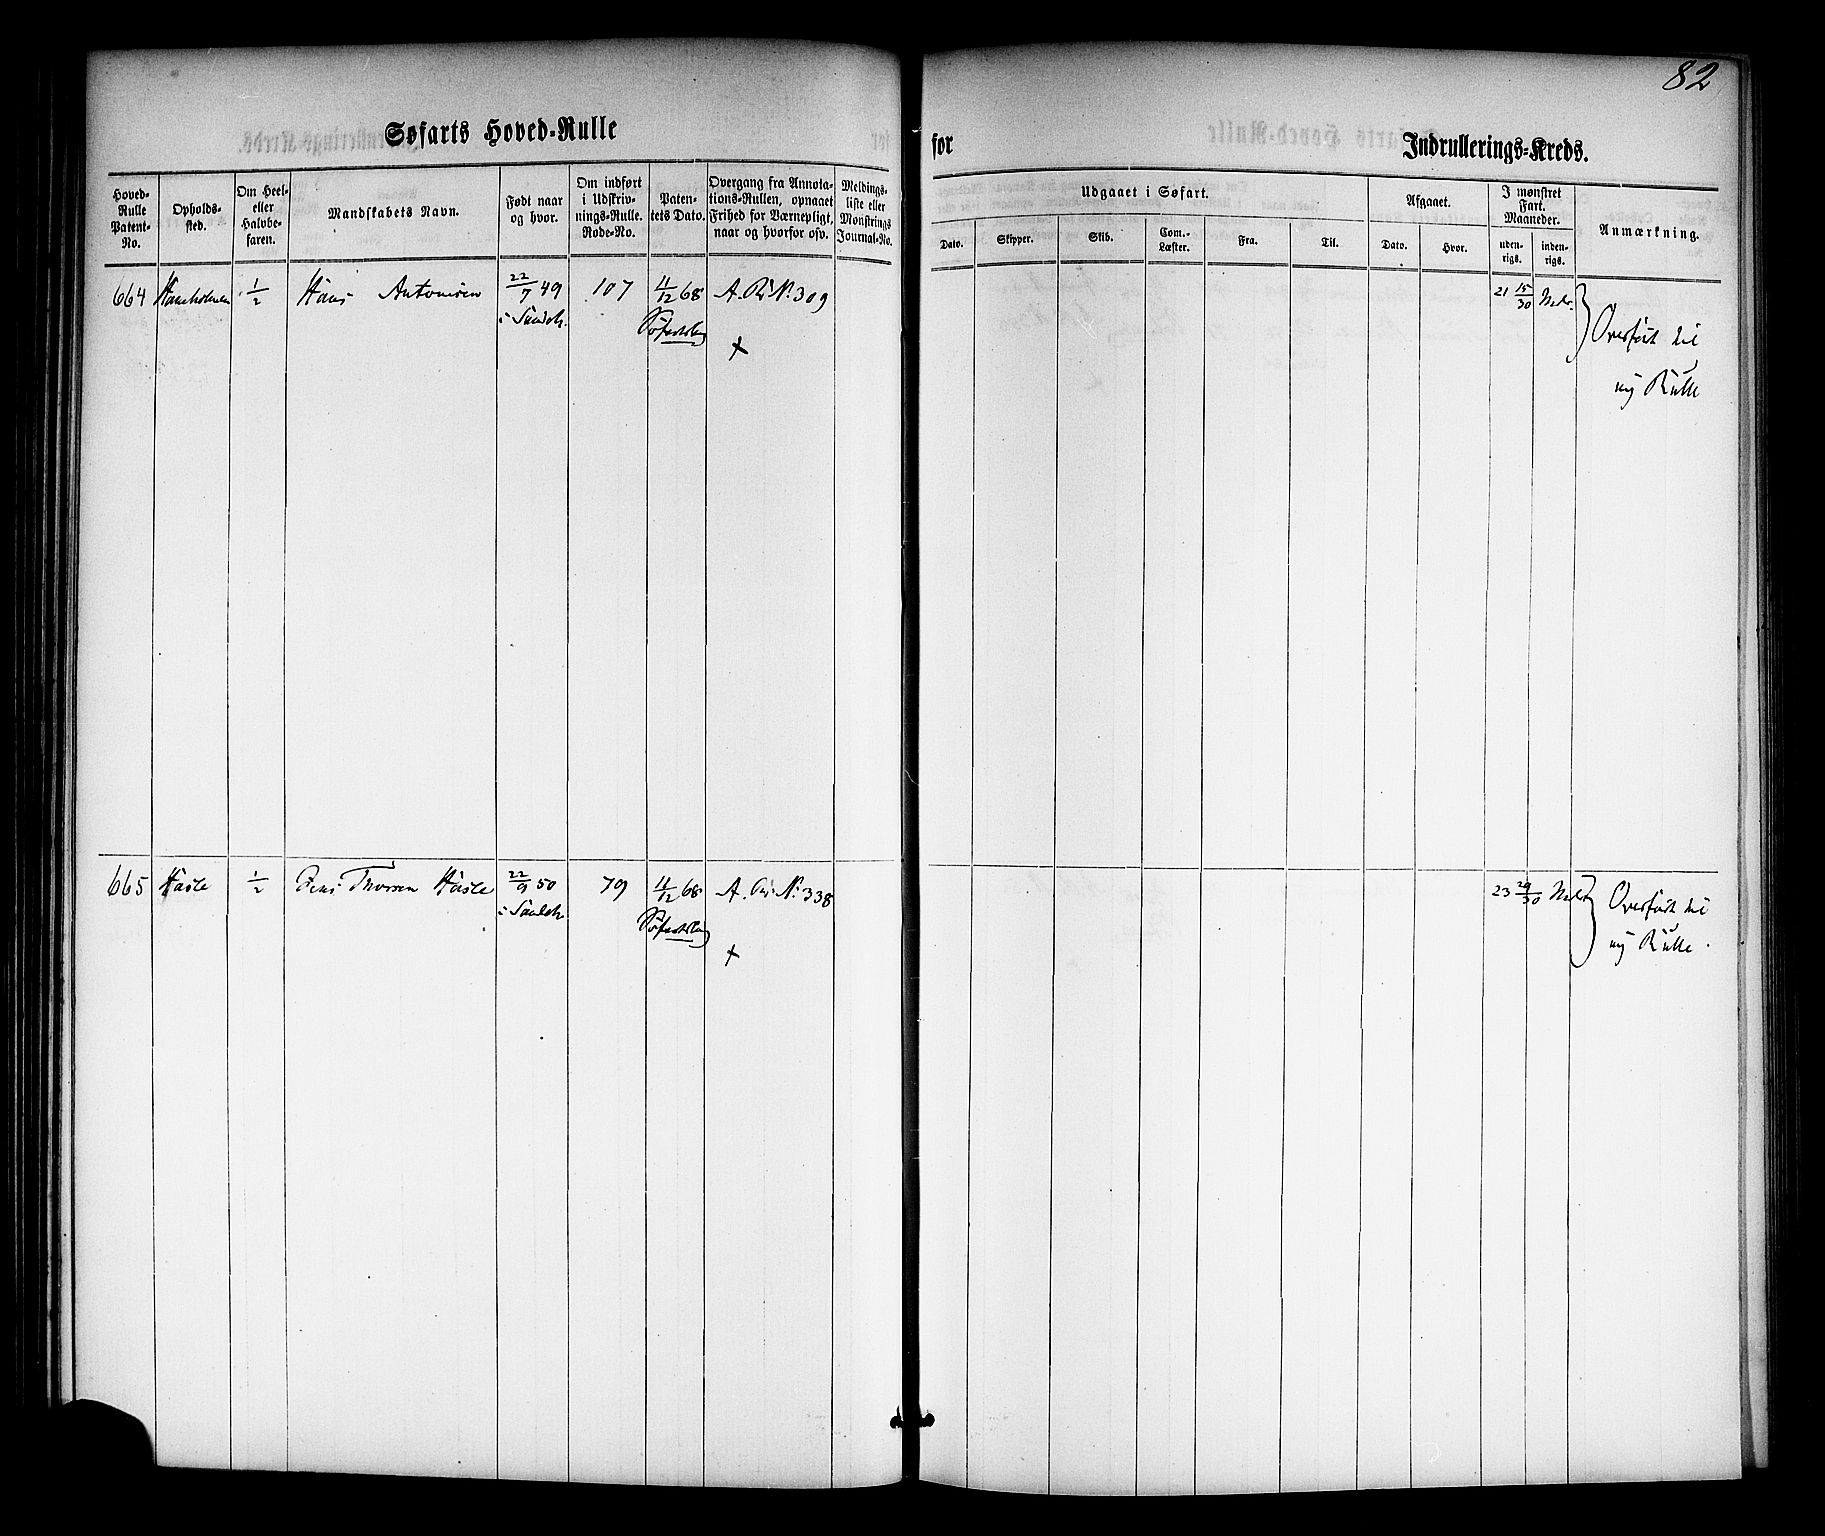 82
Søfarts Hoved-Rulle
for
Indrullerings-Kreds.
Hoved-
Rulle
Patent-
No.
Opholds-
sted.
Om Heel-
eller
Halvbe-
faren.
Mandskabets Navn.
Født naar
og hvor.
Om indført
i Udskriv-
nings-Rulle.
Rode-No.
Paten-
tets Dato.
Overgang fra Annota-
tions-Rullen, opnaaet
Frihed for Værnepligt,
naar og hvorfor osv.
Meldings-
liste eller
Mønstrings
Journal-No.
Udgaaet i Søfart.
Dato.
Skipper.
Skib.
Com.-
Læster.
Fra.
Til.
Afgaaet.
Dato.
Hvor.
I mønstret
Fart.
Maaneder.
uden-
rigs.
inden-
rigs.
Anmærkning.
664 1/2 Hans Antonsen 22/7 49 107 11/12 68 A. R. No. 309 21 15/30 Mdr.
i Sandeh.
+
Overført til
ny Rulle
665 Hasle 1/2 Jens Thorsen Hasle 22/9 50 79 11/12 68 A. R. No. 338 23 29/30 Mdr
i Sandeh
+
Overført til
ny Rulle.